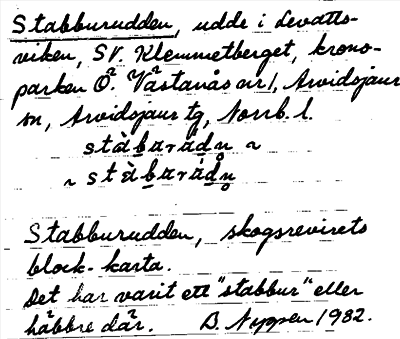 Stabburudden, udde i Levatts-
viken, SV. Klemmetberget, krono-
parken Ö. Västanås nr 1, Arvidsjaur
sn, Arvidsjaur tg, Norrb. l.
stàbarádn̥ ~
~ stàbarádn̥
Stabburudden, skogsrevirets
block-karta.
Det har varit ett "stabbur" eller
häbbre där. B. Nyppen 1982.